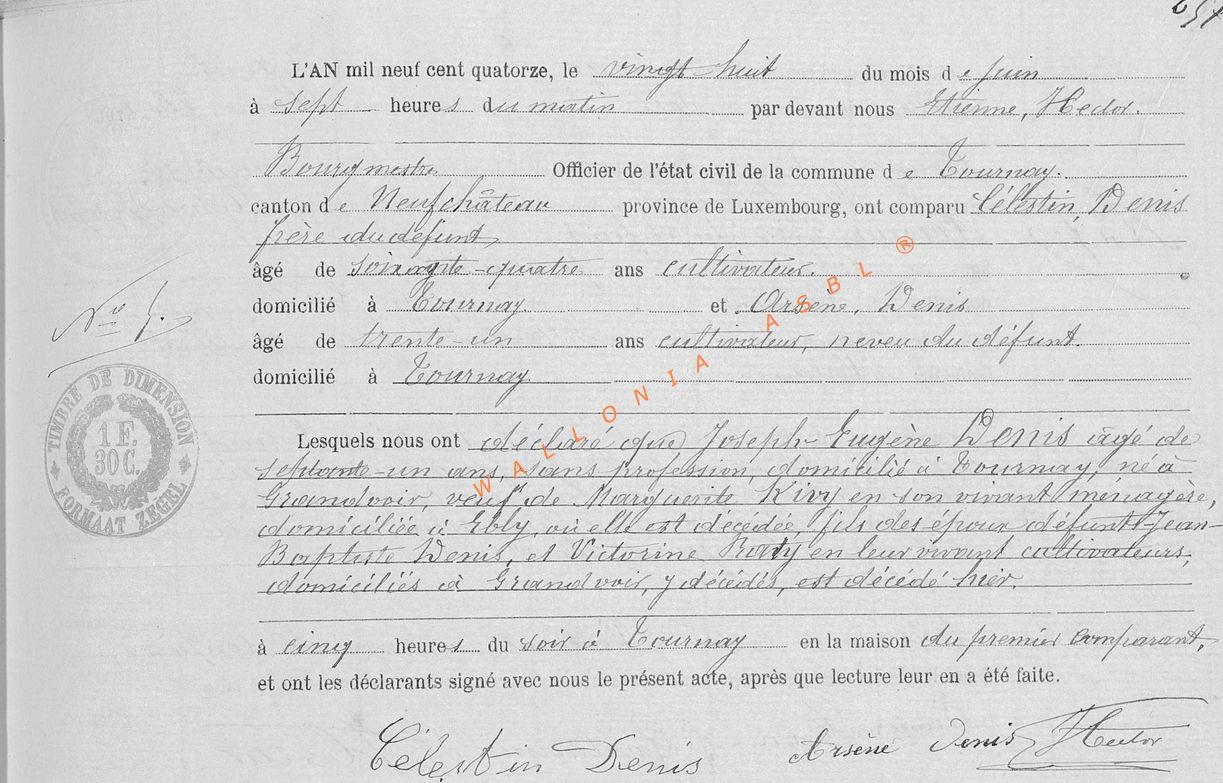 L'AN mil neuf cent quatorze, le vingt huit du mois de juin
à sept heures du matin par devant nous Etienne, Hector.
Bourgmestre Officier de l'état civil de la commune de Tournay.
canton de Neufchâteau province de Luxembourg, ont comparu Célestin, Denis
frère du défunt
âgé de soixante-quatre ans cultivateur.
domicilié à Tournay. et Arsène, Denis
âgé de trente-un ans cultivateur, neveu du défunt.
domicilié à Tournay
N° 5.
TIMBRE DE DIMENSION
1 F.
30 C.
FORMAAT ZEGEL
Lesquels nous ont déclaré que Joseph-Eugène Denis âgé de
septante-un ans, sans profession, domicilié à Tournay, né à
Grandvoir, veuf de Marguerite Kivy en son vivant ménagère,
domiciliée à Ebly, où elle est décédée, fils des époux défunts Jean-
Baptiste Denis, et Victorine en leur vivant cultivateurs,
domiciliés à Grandvoir, y décédés, est décédé hier.
à cinq heures du soir à Tournay en la maison du premier comparant,
et ont les déclarants signé avec nous le présent acte, après que lecture leur en a été faite.
Célestin Denis Arsène Denis Hector
WALLONIA ASBL ®